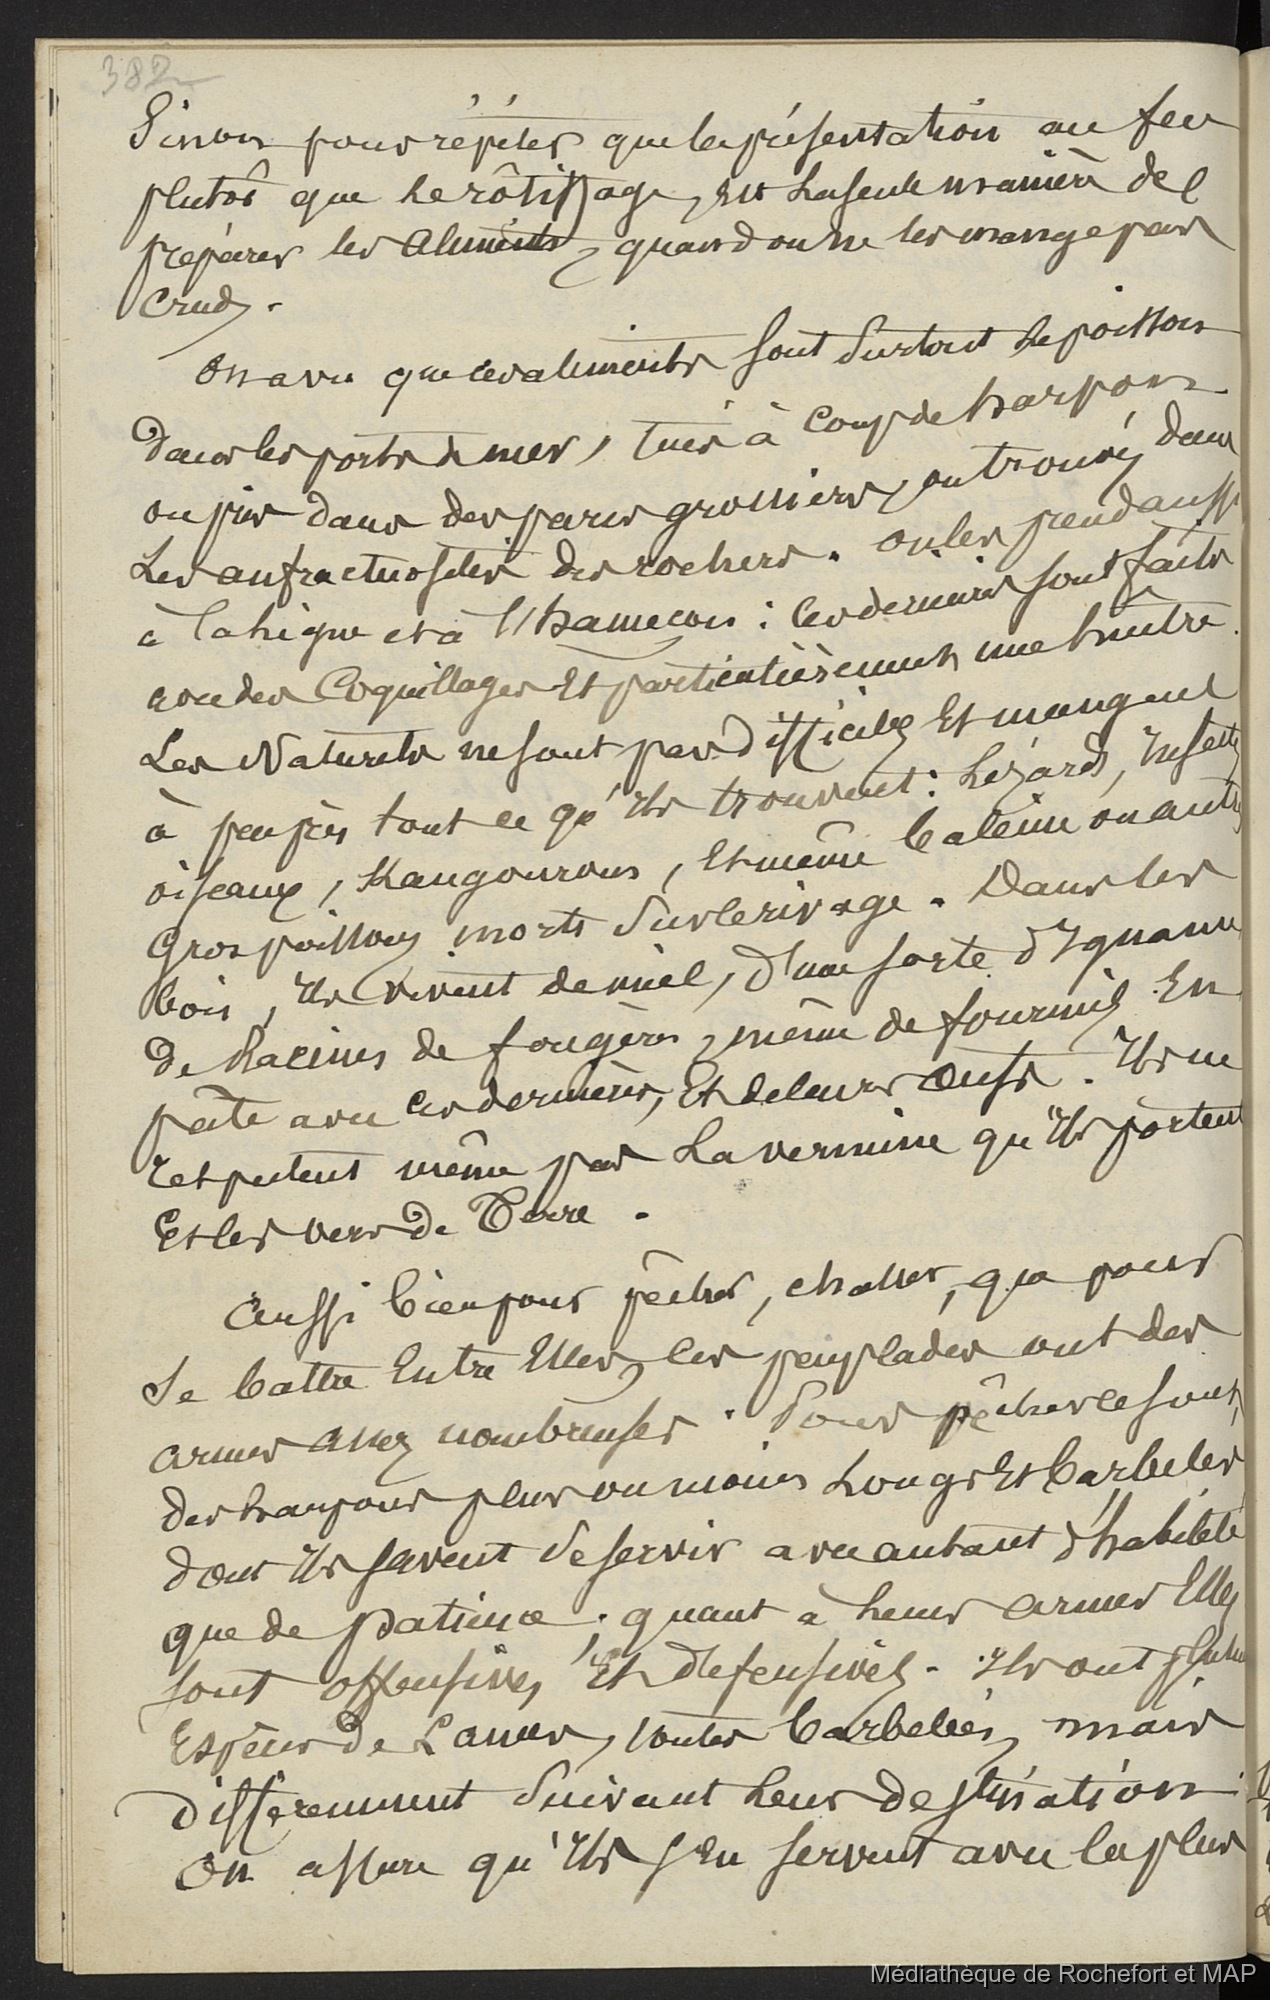 382
Sinon pour répéter que la présentation au feu
plutôt que le rôtissage, est la seule manière de
préparer les aliments, quand on ne les mange pas
Cruds.
On a vu que ces aliments sont Surtout le poisson
dans les ports de mer, tués à Coup de harpon
ou pris dans des parcs grossiers, ou trouvés dans
Les anfractuosités des rochers. on les prend aussi
à la ligne et à l'hameçon : Ces derniers sont faits
avec des Coquillages Et particulièrement une huître.
Les Naturels ne sont pas difficiles Et mangent
à peu près tout ce qu'ils trouvent : Lézards, Insectes
oiseaux, Kangourous, Et même baleine ou autres
Gros poissons morts Sur le rivage. Dans les
bois, ils vivent de miel, d'une sorte d'Iguane
De Racines de fougères, même de fourmis En
pâte avec Ces dernières, Et de leurs Œufs. Ils ne
respectent même pas La vermine qu'ils portent
Et les vers de Terre.
Aussi bien pour pêcher, chasser, que pour
Se battre Entre Elles, les peuplades ont des
armes assez nombreuses. Pour pêcher ce sont,
des harpons plus ou moins Longs Et barbelés
dont ils savent Se servir avec autant d'habileté
que de patience ; quant à Leurs armes Elles
sont offensives, Et défensives. Ils ont plusieurs
Espèces de Lances, toutes barbelées, mais
différemment Suivant Leur destination.
On assure qu'ils s'En servent avec la plus
Médiathèque de Rochefort et MAP